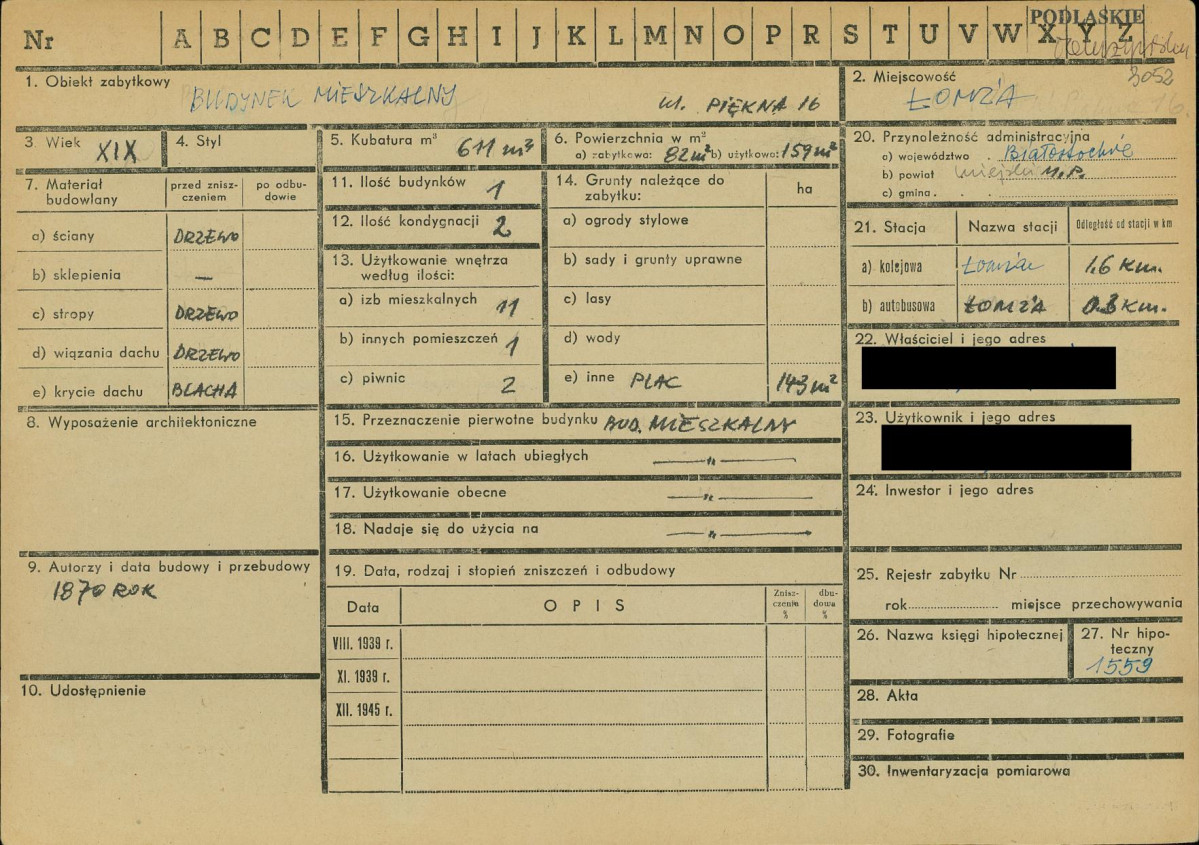 PODLASKIE
Nr A B C D E F G H I J K L M N O P R S T U V W X Y Z
3052
1. Obiekt zabytkowy
BUDYNEK MIESZKALNY ul. PIĘKNA 16
2. Miejscowość
ŁOMŻA
3. Wiek XIX
4. Styl
5. Kubatura m³ 611 m³
6. Powierzchnia w m²
a) zabytkowa: 82 m² b) użytkowa: 159 m²
20. Przynależność administracyjna
a) województwo Białostockie
b) powiat miejski M.P.
c) gmina
7. Materiał budowlany
przed znisz-
czeniem
po odbu-
dowie
a) ściany DRZEWO
b) sklepienia —
c) stropy DRZEWO
d) wiązania dachu DRZEWO
e) krycie dachu BLACHA
11. Ilość budynków 1
12. Ilość kondygnacji 2
13. Użytkowanie wnętrza
według ilości:
a) izb mieszkalnych 11
b) innych pomieszczeń 1
c) piwnic 2
14. Grunty należące do
zabytku:
ha
a) ogrody stylowe
b) sady i grunty uprawne
c) lasy
d) wody
e) inne PLAC 143 m²
21. Stacja Nazwa stacji Odległość od stacji w km
a) kolejowa Łomża 1,6 Km.
b) autobusowa ŁOMŻA 0.3 Km.
22. Właściciel i jego adres
23. Użytkownik i jego adres
24. Inwestor i jego adres
8. Wyposażenie architektoniczne
15. Przeznaczenie pierwotne budynku BUD. MIESZKALNY
16. Użytkowanie w latach ubiegłych —"—
17. Użytkowanie obecne —"—
18. Nadaje się do użycia na —"—
9. Autorzy i data budowy i przebudowy
1870 ROK
10. Udostępnienie
19. Data, rodzaj i stopień zniszczeń i odbudowy
Data OPIS
Znisz-
czenie
%
dbu-
dowa
%
VIII. 1939 r.
XI. 1939 r.
XII. 1945 r.
25. Rejestr zabytku Nr
rok miejsce przechowywania
26. Nazwa księgi hipotecznej
27. Nr hipo-
teczny
1559
28. Akta
29. Fotografie
30. Inwentaryzacja pomiarowa